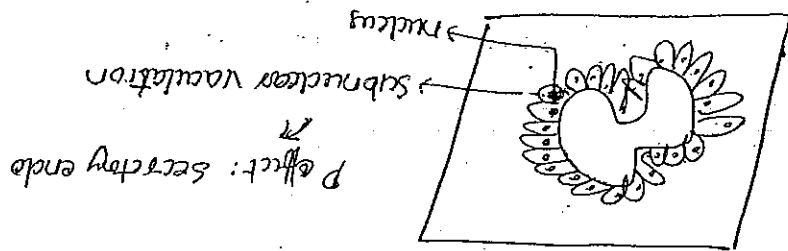 P effect: Secretory endo
subnuclear vaculation
nucleus